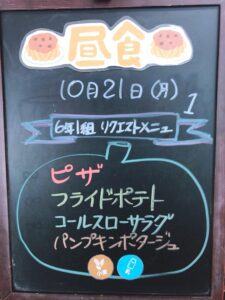 昼食
10月21日(月)
1
6年1組 リクエストメニュー
ピザ
フライドポテト
コールスローサラダ
パンプキンポタージュ
小麦
乳